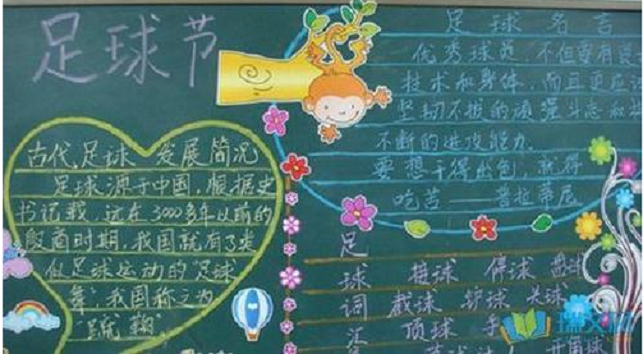 足球节
古代足球发展简况
足球源于中国,根据史
书记载,远在3000多年以前的
殷商时期,我国就有了类
似足球运动的"足球
舞",我国称之为
"蹴鞠"
足球名言
优秀球员不但要有良
技术和身体,而且更应
坚韧不拔的顽强斗志和
不断的进攻能力.
要想干得出色,就得
吃苦——普拉蒂尼
足球词汇
接球 停球
截球 铲球 头球
顶球 手
开角球